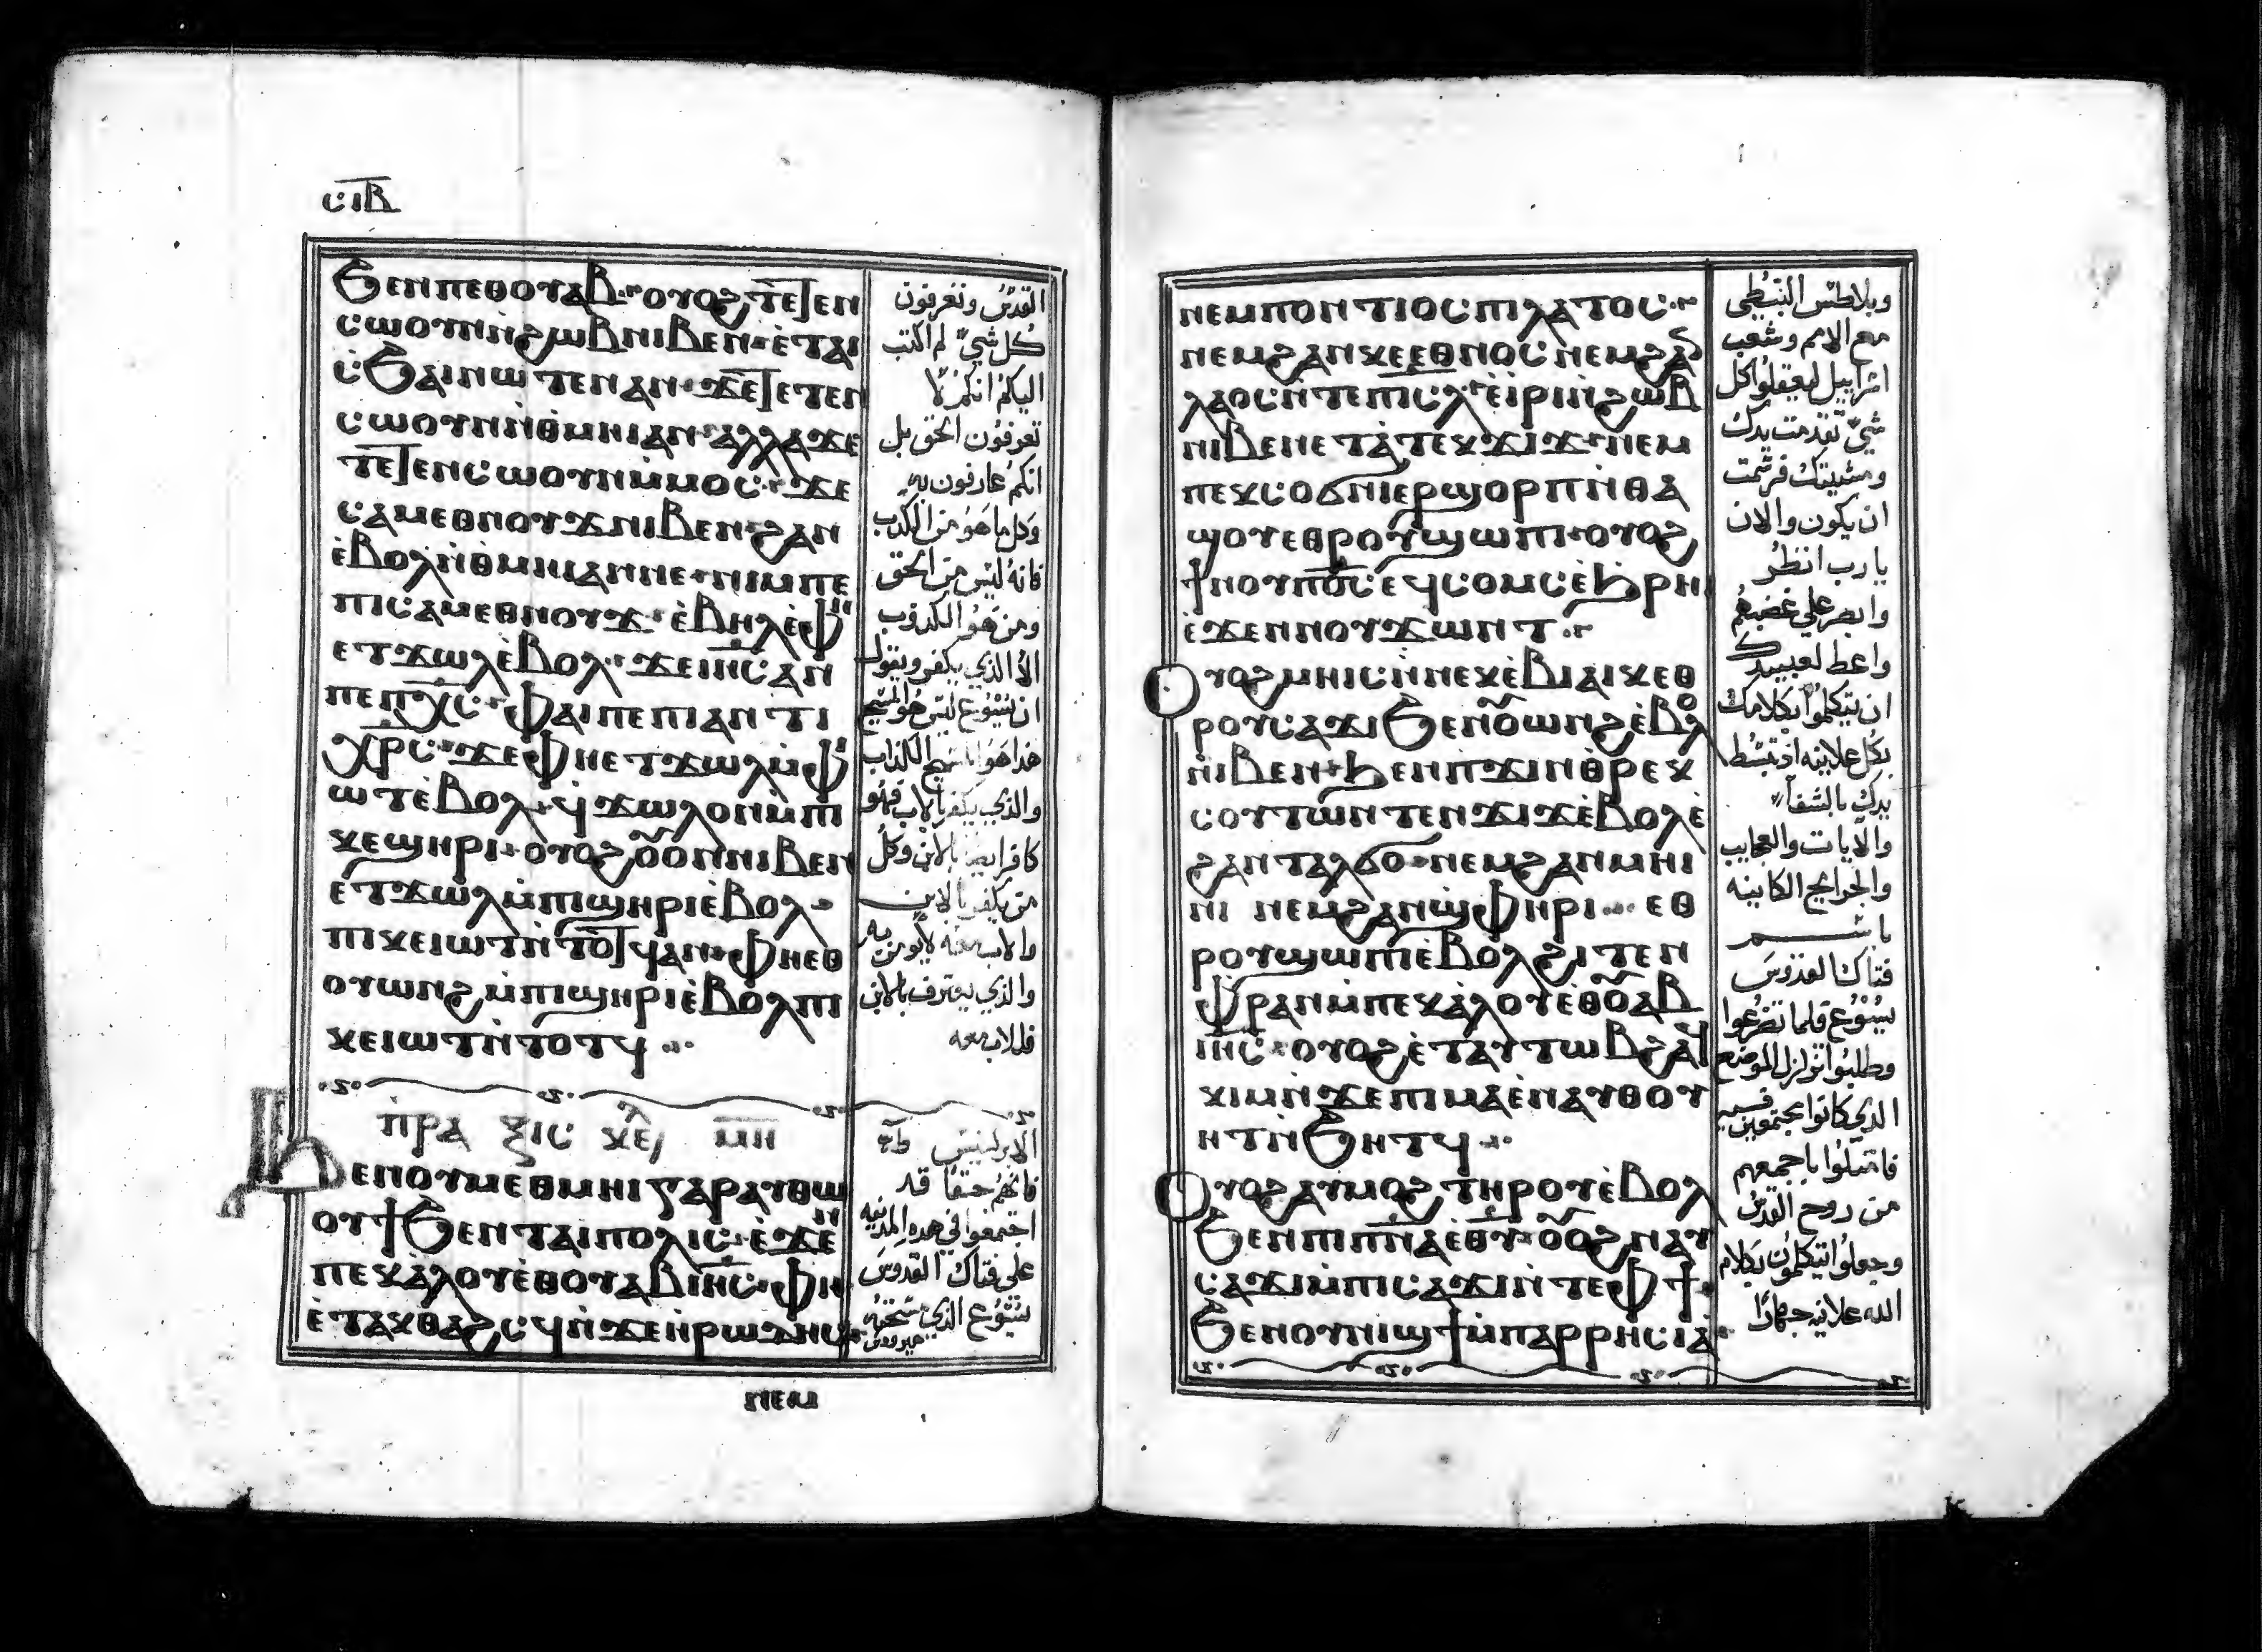 ⲥⲓⲃ
ϧⲉⲛⲡⲉⲑⲟⲩⲁⲃ·ⲟⲩⲟϩ ⲧⲉⲧⲉⲛ
ⲥⲱⲟⲩⲛⲛ̀ϩⲱⲃⲛⲓⲃⲉⲛ·ⲉ̀ⲧⲁⲓ
ⲥ̀ϧⲁⲓⲛⲱⲧⲉⲛⲁⲛ·ϫⲉⲧⲉⲧⲉⲛ
ⲥⲱⲟⲩⲛⲛ̀ⲑⲙⲏⲓⲁⲛ·ⲁⲗⲗⲁϫⲉ
ⲧⲉⲧⲉⲛⲥⲱⲟⲩⲛⲙ̀ⲙⲟⲥ·ϫⲉ
ⲥⲁⲙⲉⲑⲛⲟⲩϫⲛⲓⲃⲉⲛ·ϩⲁⲛ
ⲉ̀ⲃⲟⲗⲛ̀ⲑⲙⲏⲓⲁⲛⲛⲉ·ⲛⲓⲙⲡⲉ
ⲡⲓⲥⲁⲙⲉⲑⲛⲟⲩϫ·ⲉ̀ⲃⲏⲗⲉ̀ⲫⲏ
ⲉⲧϫⲱⲗⲉ̀ⲃⲟⲗ·ϫⲉⲓⲏⲥⲁⲛ
ⲡⲉⲡⲭ̅ⲥ̅·ⲫⲁⲓⲡⲉⲡⲓⲁⲛⲧⲓ
ⲭⲣⲥ·ϫⲉⲫⲏⲉⲧϫⲱⲗⲙ̀ⲫⲓ
ⲱⲧⲉ̀ⲃⲟⲗ·ϥϫⲱⲗⲟⲛⲙ̀ⲡⲓ
ⲕⲉϣⲏⲣⲓ·ⲟⲩⲟϩⲟⲩⲟⲛⲛⲓⲃⲉⲛ
ⲉⲧϫⲱⲗⲙ̀ⲡⲓϣⲏⲣⲓⲉ̀ⲃⲟⲗ·
ⲡⲓⲕⲉⲓⲱⲧⲛ̀ⲧⲟⲧϥⲁⲛ·ⲫⲏⲉⲑ
ⲟⲩⲱⲛϩⲙ̀ⲡⲓϣⲏⲣⲓⲉ̀ⲃⲟⲗⲡⲓ
ⲕⲉⲓⲱⲧⲛ̀ⲧⲟⲧϥ·
ⲡⲣⲁ ⲝⲓⲥ ⲕⲉⲫⲗ ⲙⲏ
ϧⲉⲛⲟⲩⲙⲉⲑⲙⲏⲓⲅⲁⲣⲁⲩⲑⲱ
ⲟⲩϯϧⲉⲛⲧⲁⲓⲡⲟⲗⲓⲥ·ⲉ̀ϫⲉⲛ
ⲡⲉⲕⲁ̀ⲗⲟⲩⲉ̀ⲑⲟⲩⲁⲃⲓⲏⲥ·ⲫⲏ
ⲉ̀ⲧⲁⲕⲑⲁϩⲥϥⲛ̀ϫⲉⲏⲣⲱⲇⲏⲥ
ⲛⲉⲙ
القدس وتعرفون
كل شي لم اكتب
اليكم انكم لا
تعرفون الحق بل
انكم عارفون به
وكل ما هو من الكذب
فانه ليس من الحق
ومن هو الكذوب
الا الذي يكفر ويقول
ان يسوع ليس هو المسيح
هذا هو المسيح الكذاب
والذي يكفر بالاب فهو
كافر ايضا بالابن وكل
من يكفر بالابن
والذي يعترف بالابن
فللاب معه
الابركسيس
فانهم حقا قد
اجتمعوا في هذه المدينه
على فتاك القدوس
يسوع الذي مسحته
هيرودس
ⲛⲉⲙⲡⲟⲛⲧⲓⲟⲥⲡⲓⲗⲁⲧⲟⲥ·
ⲛⲉⲙϩⲁⲛⲕⲉⲉⲑⲛⲟⲥⲛⲉⲙϩⲁⲛ
ⲗⲁⲟⲥⲛ̀ⲧⲉⲡⲓⲥⲗ·ⲉⲓ̀ⲣⲓⲛ̀ϩⲱⲃ
ⲛⲓⲃⲉⲛⲉⲧⲁ̀ⲧⲉⲕϫⲓϫ·ⲛⲉⲙ
ⲡⲉⲕⲥⲟϭⲛⲓⲉⲣϣⲟⲣⲡⲛ̀ⲑⲁ
ϣⲟⲩⲉⲑⲣⲟⲩϣⲱⲡⲓ·ⲟⲩⲟϩ
ϯⲛⲟⲩⲡⲟ̅ⲥ̅ⲉϥⲥⲟⲙⲥⲉ̀ϧⲣⲏⲓ
ⲉ̀ϫⲉⲛⲛⲟⲩϫⲱⲛⲧ·
ⲟⲩⲟϩⲙⲏⲓⲥⲛ̀ⲛⲉⲕⲉ̀ⲃⲓⲁⲓⲕⲉⲑ
ⲣⲟⲩⲥⲁϫⲓϧⲉⲛⲟⲩⲱⲛϩⲉ̀ⲃⲟⲗ
ⲛⲓⲃⲉⲛ·ϧⲉⲛⲡϫⲓⲛⲑⲣⲉⲕ
ⲥⲟⲩⲧⲱⲛⲧⲉⲛϫⲓϫⲉ̀ⲃⲟⲗⲉ̀
ϩⲁⲛⲧⲁⲗϭⲟ·ⲛⲉⲙϩⲁⲛⲙⲏⲓ
ⲛⲓ ⲛⲉⲙϩⲁⲛϣⲫⲏⲣⲓ·ⲉⲑ
ⲣⲟⲩϣⲱⲡⲓⲉ̀ⲃⲟⲗϩⲓⲧⲉⲛ
ⲫⲣⲁⲛⲙ̀ⲡⲉⲕⲁ̀ⲗⲟⲩⲉ̀ⲑⲟⲩⲁⲃ
ⲓⲏ̅ⲥ̅·ⲟⲩⲟϩⲉ̀ⲧⲁⲩⲧⲱⲃϩⲁϥ
ⲕⲓⲙⲛ̀ϫⲉⲡⲓⲙⲁⲉ̀ⲛⲁⲩⲑⲟⲩ
ⲏⲧⲛ̀ϧⲏⲧϥ·
ⲟⲩⲟϩⲁⲩⲙⲟϩⲧⲏⲣⲟⲩⲉ̀ⲃⲟⲗ
ϧⲉⲛⲡⲓⲡ̅ⲛ̅ⲁⲉ̀ⲑⲩ·ⲟⲩⲟϩⲛⲁⲩ
ⲥⲁϫⲓⲙ̀ⲡⲓⲥⲁϫⲓⲛ̀ⲧⲉⲫϯ·
ϧⲉⲛⲟⲩⲛⲓϣϯⲙ̀ⲡⲁⲣⲣⲏⲥⲓⲁ̀·
وبلاطس النبطي
مع الامم وشعب
اسراييل ليعقلوا كل
شي تقدمت يدك
ومشيتك فرسمت
ان يكون والان
يا رب انظر
وابصر على غضبهم
واعط لعبيدك
ان يتكلموا بكلامك
بكل علانيه اذ تبسط
يدك بالشفا
والايات والعجايب
والجرايح الكاينه
باسم
فتاك القدوس
يسوع فلما تضرعوا
وطلبوا تزلزل الموضع
الذي كانوا مجتمعين فيه
فامتلوا باجمعهم
من روح القدس
وجعلوا يتكلمون بكلام
الله علانيه جهارا